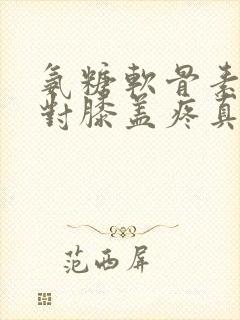 氨糖軟骨素
對膝盖疼真
范西屏